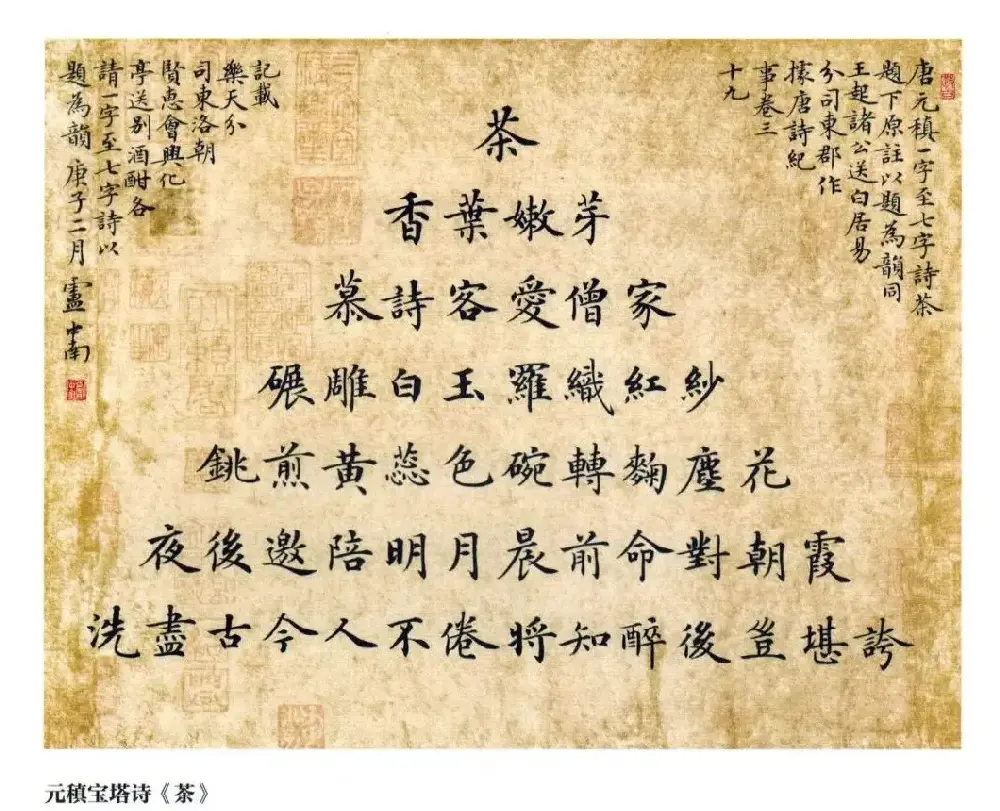 唐元稹一字至七字詩茶
題下原註以題為韻同
王起諸公送白居易
分司東郡作
據唐詩紀
事卷三
十九
茶
香葉嫩芽
慕詩客愛僧家
碾雕白玉羅織紅紗
銚煎黃蕊色碗轉麴塵花
夜後邀陪明月晨前命對朝霞
洗盡古今人不倦將知醉後豈堪誇
記載
樂天分
司東洛朝
賢悳會興化
亭送别酒酣各
請一字至七字詩以
題為韻 庚子二月 盧中南
元稹宝塔诗《茶》